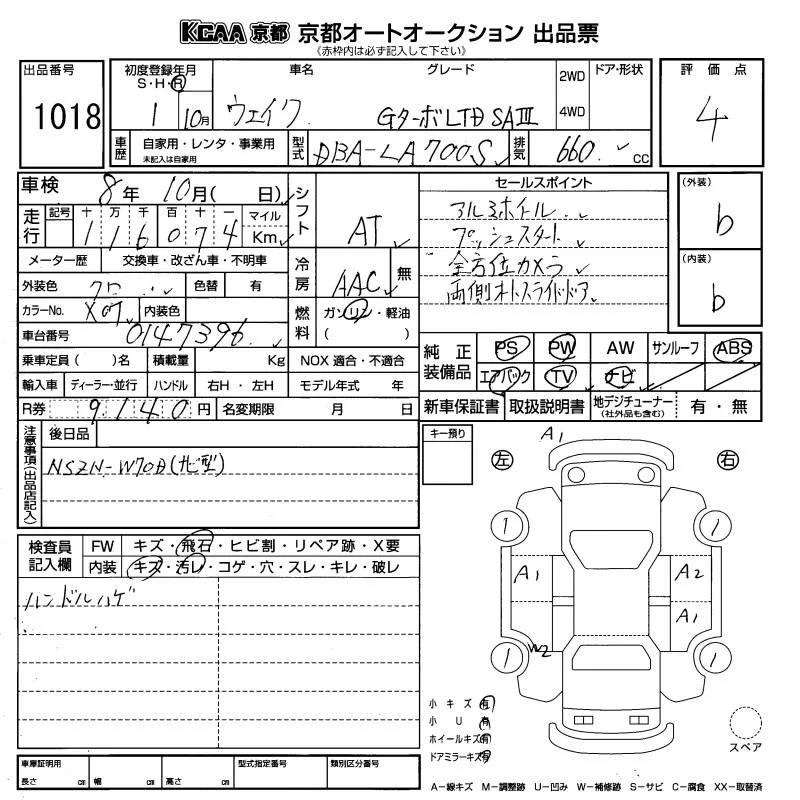 KCAA 京都 京都オートオークション 出品票
《赤枠内は必ず記入して下さい》
出品番号 初度登録年月 車名 グレード 2WD ドア・形状 評価点
S・H・R
1018 1 10月 ウェイク GターボLTD SAⅢ 4WD 4
車歴 自家用・レンタ・事業用 型式 DBA-LA700S 排気 660 cc
未記入は自家用
車検 8年 10月( 日) シフト AT セールスポイント (外装)
走行 記号 十 万 千 百 十 一 マイル アルミホイル b
1 1 6 0 7 4 Km プッシュスタート
メーター歴 交換車・改ざん車・不明車 冷房 AAC 無 全方位カメラ (内装)
外装色 色替 有 両側オートスライドドア b
カラーNo. X07 内装色 燃料 ガソリン・軽油
車台番号 0147396 ( )
乗車定員( )名 積載量 Kg NOX 適合・不適合 純正装備品 PS PW AW サンルーフ ABS
輸入車 ディーラー・並行 ハンドル 右H・左H モデル年式 年 エアバック TV ナビ
R券 9140円 名変期限 月 日 新車保証書 取扱説明書 地デジチューナー 有・無
(社外品も含む)
注意事項(出品店記入) 後日品 キー預り
NSZN-W70D(ナビ型)
A1
左 右
検査員記入欄 FW キズ・飛石・ヒビ割・リペア跡・X要
内装 キズ・汚レ・コゲ・穴・スレ・キレ・破レ
1 1
ハンドルハゲ A1 A2
A1
1 W2 1
小キズ 有
小U 有
ホイールキズ 有
ドアミラーキズ 有
スペア
車庫証明用 型式指定番号 類別区分番号
長さ cm 幅 cm 高さ cm
A-線キズ M-調整跡 U-凹み W-補修跡 S-サビ C-腐食 XX-取替済